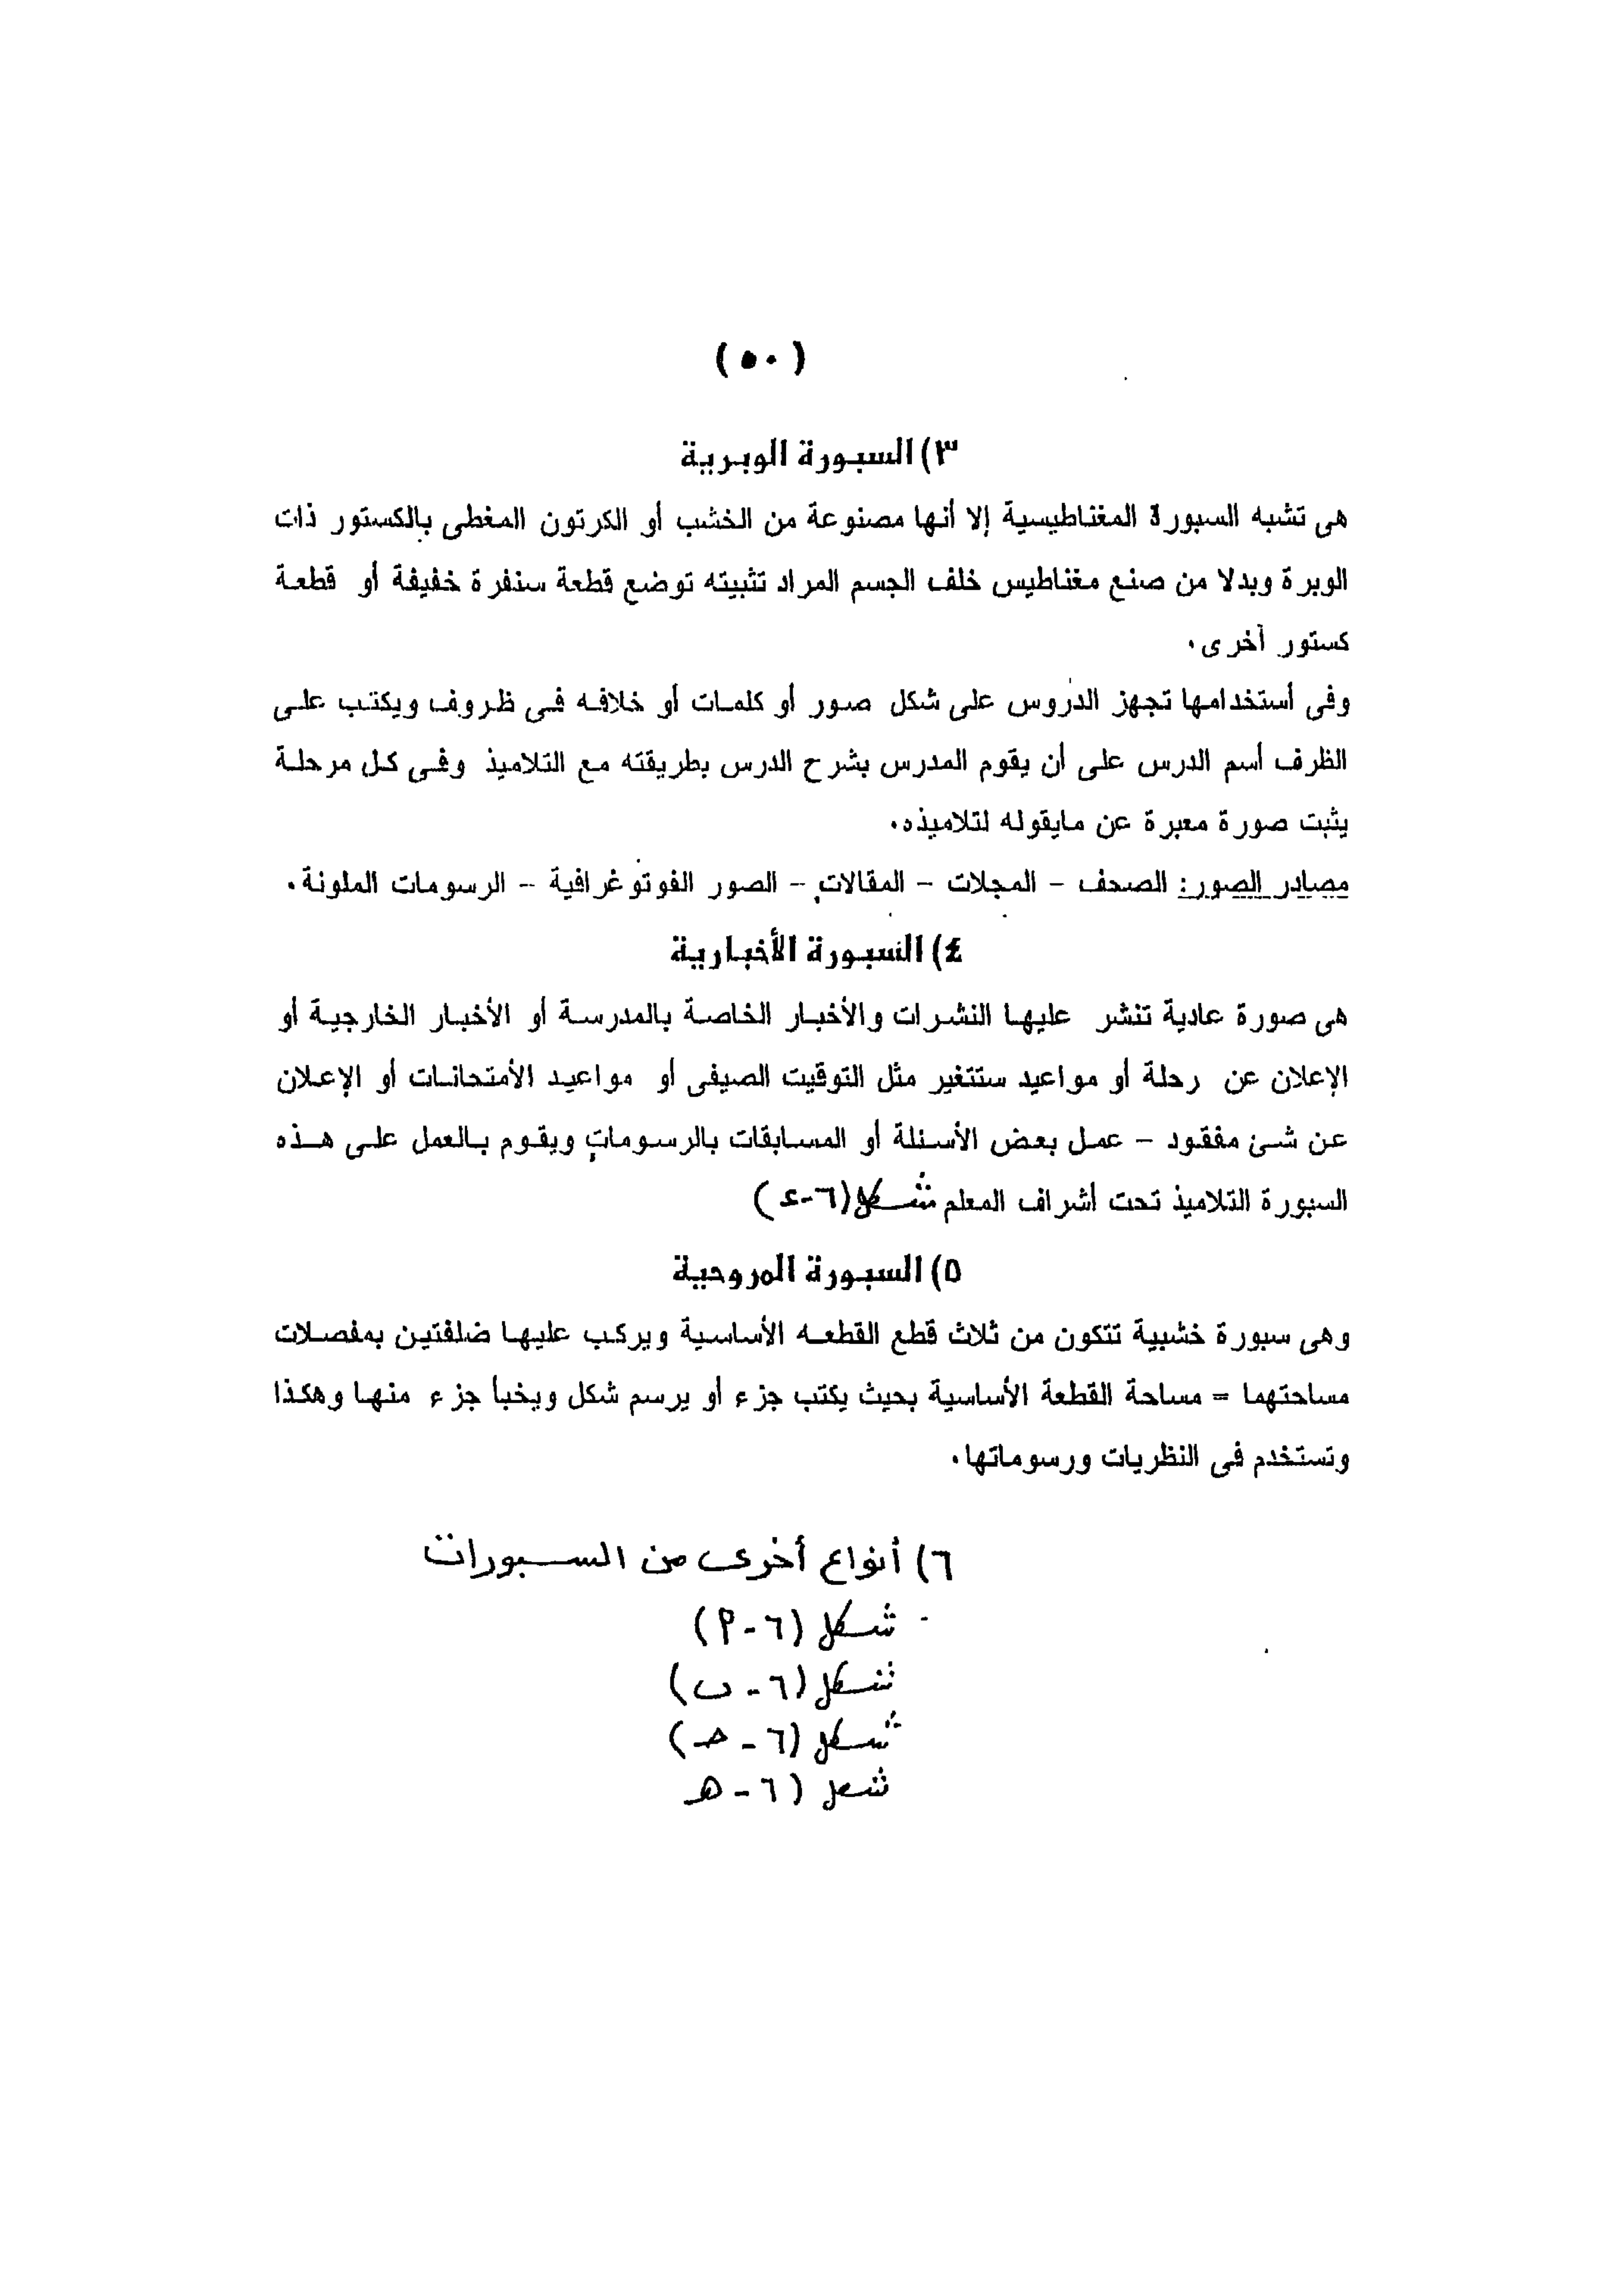 (٥٠)
٣) السبورة الوبرية
هى تشبه السبورة المغناطيسية إلا أنها مصنوعة من الخشب أو الكرتون المغطى بالكستور ذات
الوبرة وبدلا من صنع مغناطيس خلف الجسم المراد تثبيته توضع قطعة سنفرة خفيفة أو قطعة
كستور أخرى.
وفى أستخدامها تجهز الدروس على شكل صور أو كلمات أو خلافه فى ظروف ويكتب على
الظرف أسم الدرس على أن يقوم المدرس بشرح الدرس بطريقته مع التلاميذ وفى كل مرحلة
يثبت صورة معبرة عن مايقوله لتلاميذه.
مصادر الصور: الصحف – المجلات – المقالات – الصور الفوتوغرافية – الرسومات الملونة.
٤) السبورة الأخبارية
هى صورة عادية تنشر عليها النشرات والأخبار الخاصة بالمدرسة أو الأخبار الخارجية أو
الإعلان عن رحلة أو مواعيد ستتغير مثل التوقيت الصيفى أو مواعيد الأمتحانات أو الإعلان
عن شئ مفقود – عمل بعض الأسئلة أو المسابقات بالرسومات ويقوم بالعمل على هذه
السبورة التلاميذ تحت أشراف المعلم شكل (٦-ء)
٥) السبورة المروحية
وهى سبورة خشبية تتكون من ثلاث قطع القطعه الأساسية ويركب عليها ضلفتين بمفصلات
مساحتهما = مساحة القطعة الأساسية بحيث يكتب جزء أو يرسم شكل ويخبأ جزء منها وهكذا
وتستخدم فى النظريات ورسوماتها.
٦) أنواع أخرى من السبورات
شكل (٦-أ)
شكل (٦-ب)
شكل (٦-حـ)
شكل (٦-هـ